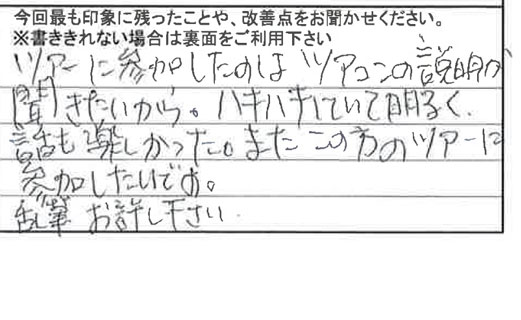 今回最も印象に残ったことや、改善点をお聞かせください。
※書ききれない場合は裏面をご利用下さい
ツアーに参加したのは ツアコンの説明が
聞きたいから。ハキハキしていて明るく、
話も楽しかった。また この方のツアーに
参加したいです。
乱筆 お許し下さい.